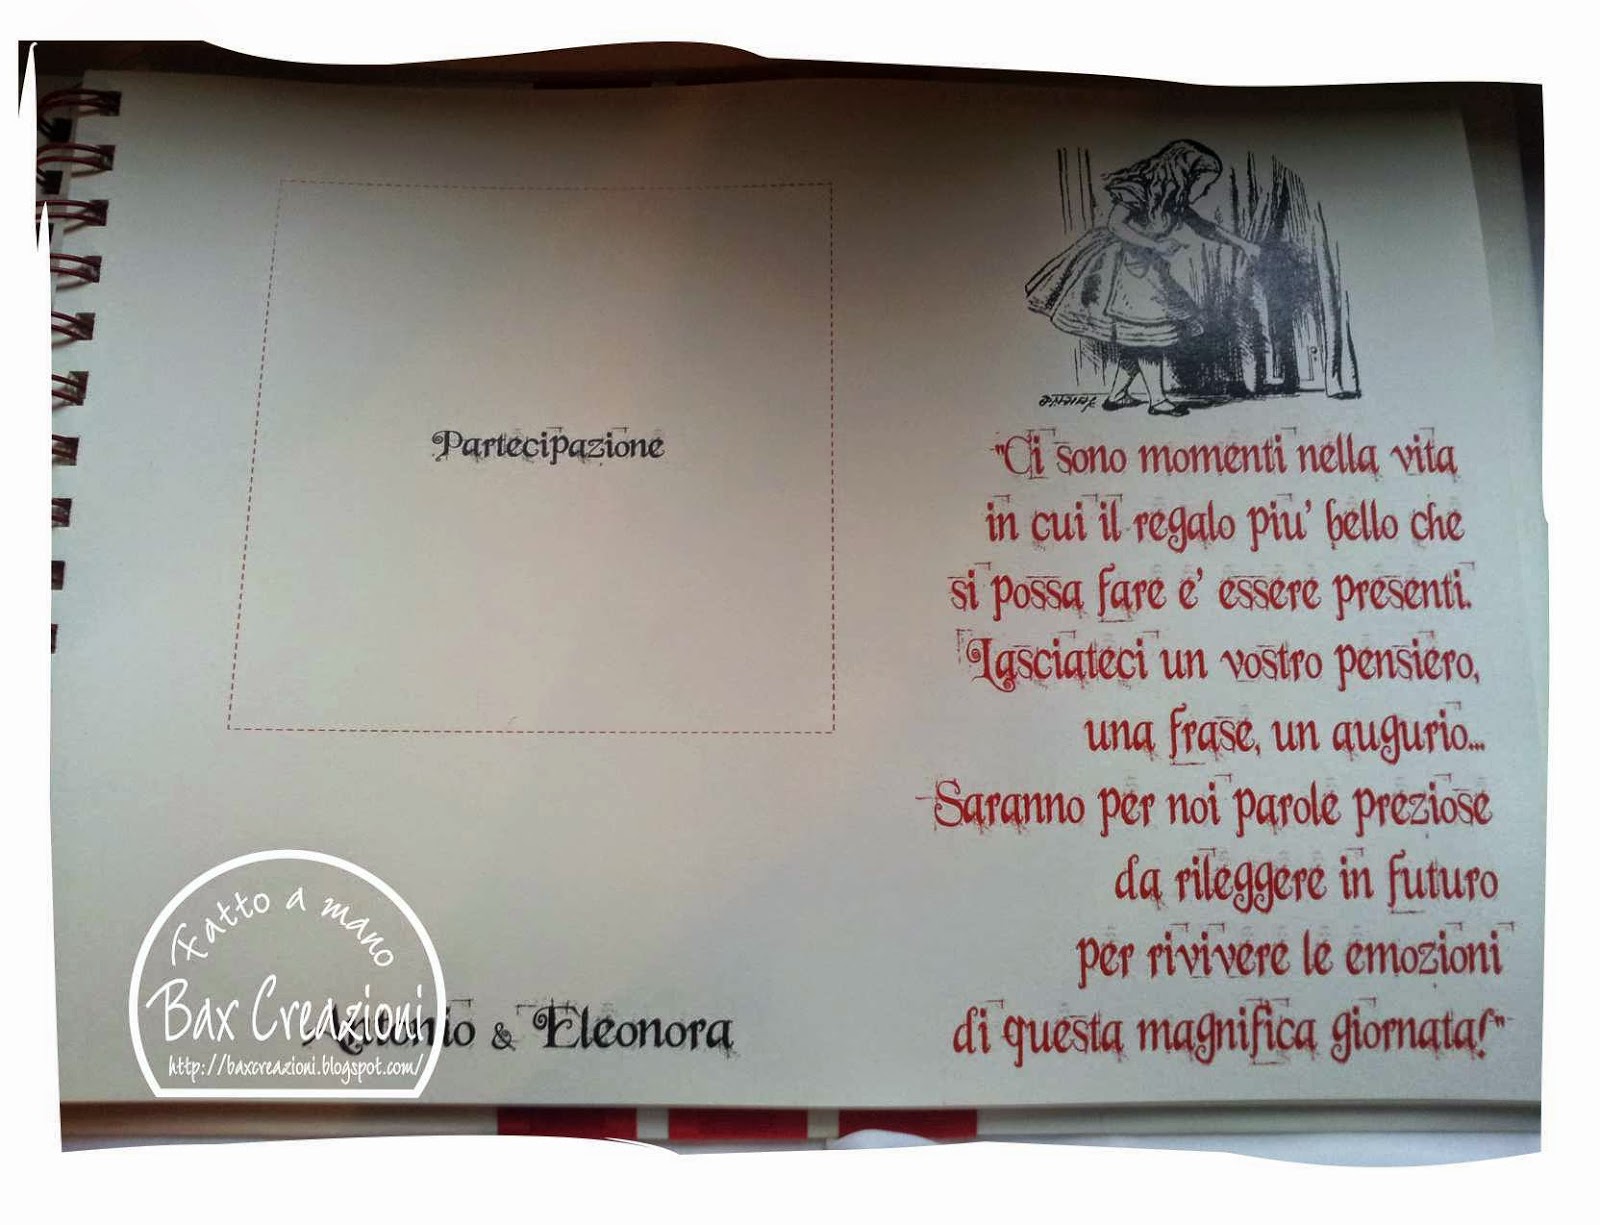 Partecipazione
Antonio & Eleonora
"Ci sono momenti nella vita
in cui il regalo piu' bello che
si possa fare e' essere presenti.
Lasciateci un vostro pensiero,
una frase, un augurio...
Saranno per noi parole preziose
da rileggere in futuro
per rivivere le emozioni
di questa magnifica giornata!"
Fatto a mano
Bax Creazioni
http://baxcreazioni.blogspot.com/